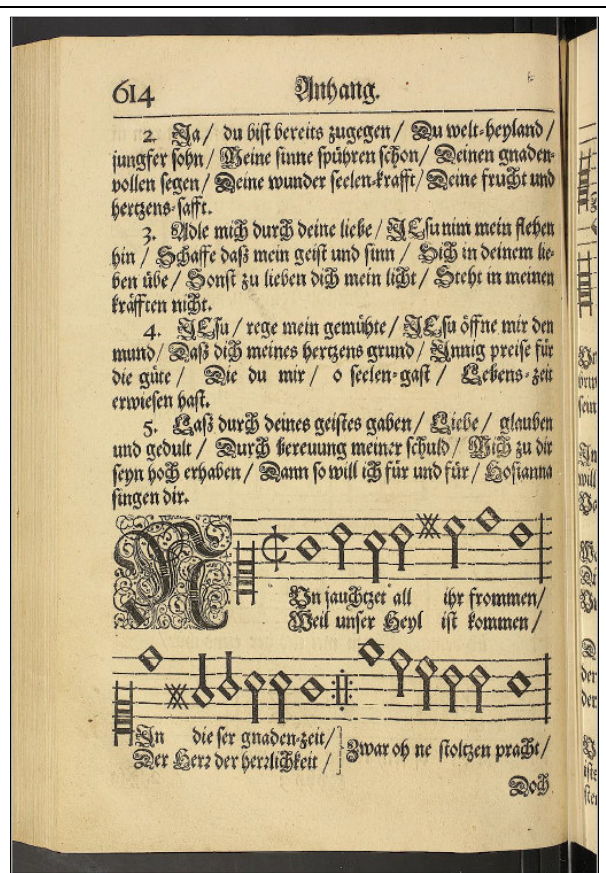 614 Anhang.
2. Ja / du bist bereits zugegen / Du welt-heyland /
jungfer sohn / Meine sinne spühren schon / Deinen gnaden-
vollen segen / Deine wunder seelen-krafft / Deine frucht und
hertzens-safft.
3. Adle mich durch deine liebe / JESu nim mein flehen
hin / Schaffe daß mein geist und sinn / Sich in deinem lie-
ben übe / Sonst zu lieben dich mein licht / Steht in meinen
kräfften nicht.
4. JESu / rege mein gemühte / JESu öffne mir den
mund / Daß dich meines hertzens grund / Innig preise für
die güte / Die du mir / o seelen-gast / Lebens-zeit
erwiesen hast.
5. Laß durch deines geistes gaben / Liebe / glauben
und gedult / Durch bereuung meiner schuld / Mich zu dir
seyn hoch erhaben / Dann so will ich für und für / Hosianna
singen dir.
NUn jauchtzet all ihr frommen /
Weil unser Heyl ist kommen /
In die ser gnaden-zeit /
Der Herr der herrlichkeit /
Zwar oh ne stoltzen pracht /
Doch